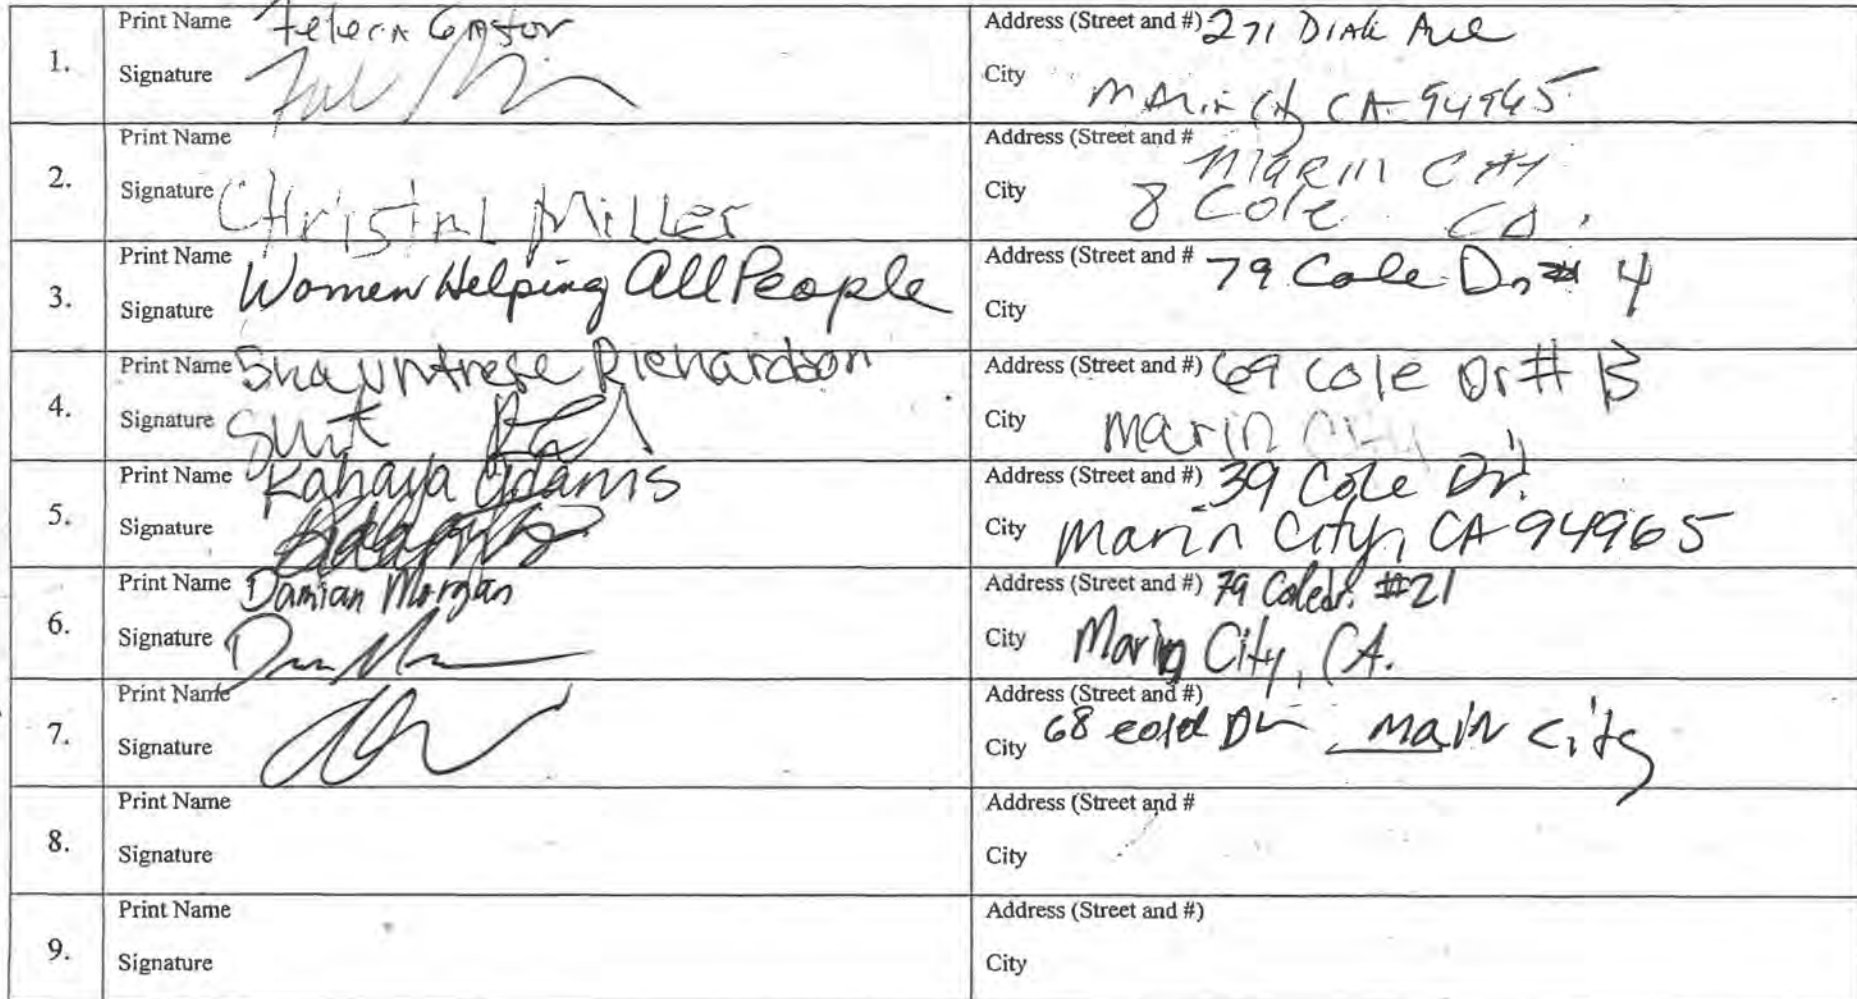 1.
Print Name
Signature
Address (Street and #) 271 Ave
City
CA 94965
2.
Print Name
Signature Christal Miller
Address (Street and #
Marin City
City 8 Cole CA.
3.
Print Name Women Helping All People
Signature
Address (Street and # 79 Cole Dr # 4
City
4.
Print Name Shauntrese Richardson
Signature
Address (Street and #) 69 Cole Dr # B
City Marin City
5.
Print Name Kahaya Adams
Signature
Address (Street and #) 39 Cole Dr.
City Marin City, CA 94965
6.
Print Name Damian Morgan
Signature
Address (Street and #) 79 Cole dr. #21
City Marin City, CA.
7.
Print Name
Signature
Address (Street and #)
City 68 Dr City
8.
Print Name
Signature
Address (Street and #
City
9.
Print Name
Signature
Address (Street and #)
City